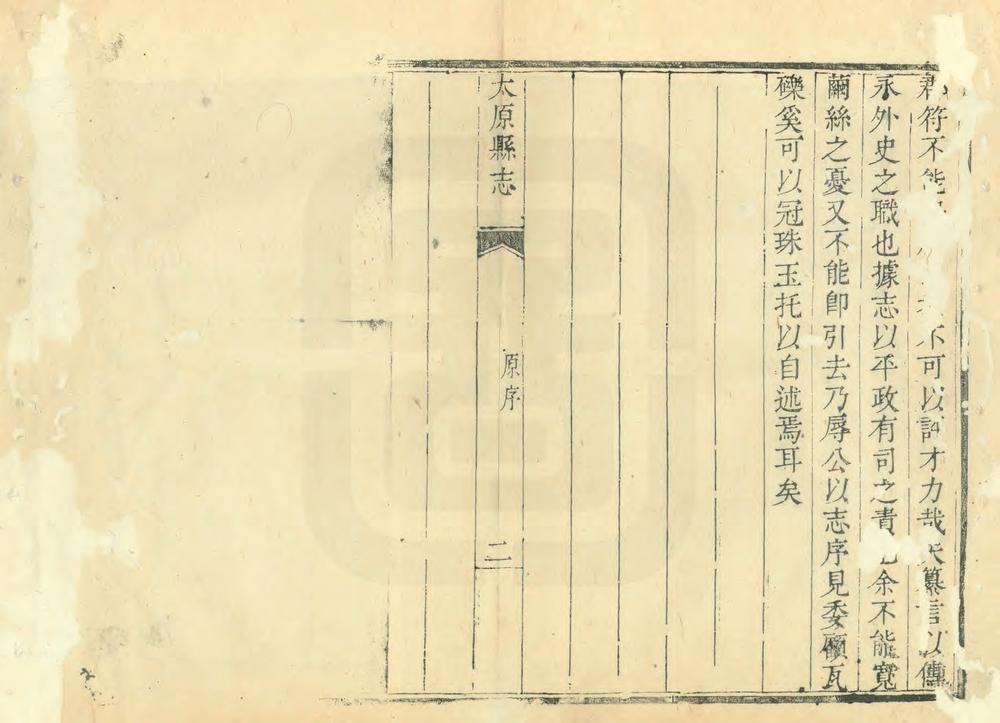 符不能不可以試才力哉夫纂言以傳
永外史之職也據志以平政有司之責余不能寬
繭絲之憂又不能卽引去乃辱公以志序見委顧瓦
礫奚可以冠珠玉托以自述焉耳矣
太原縣志
原序
二